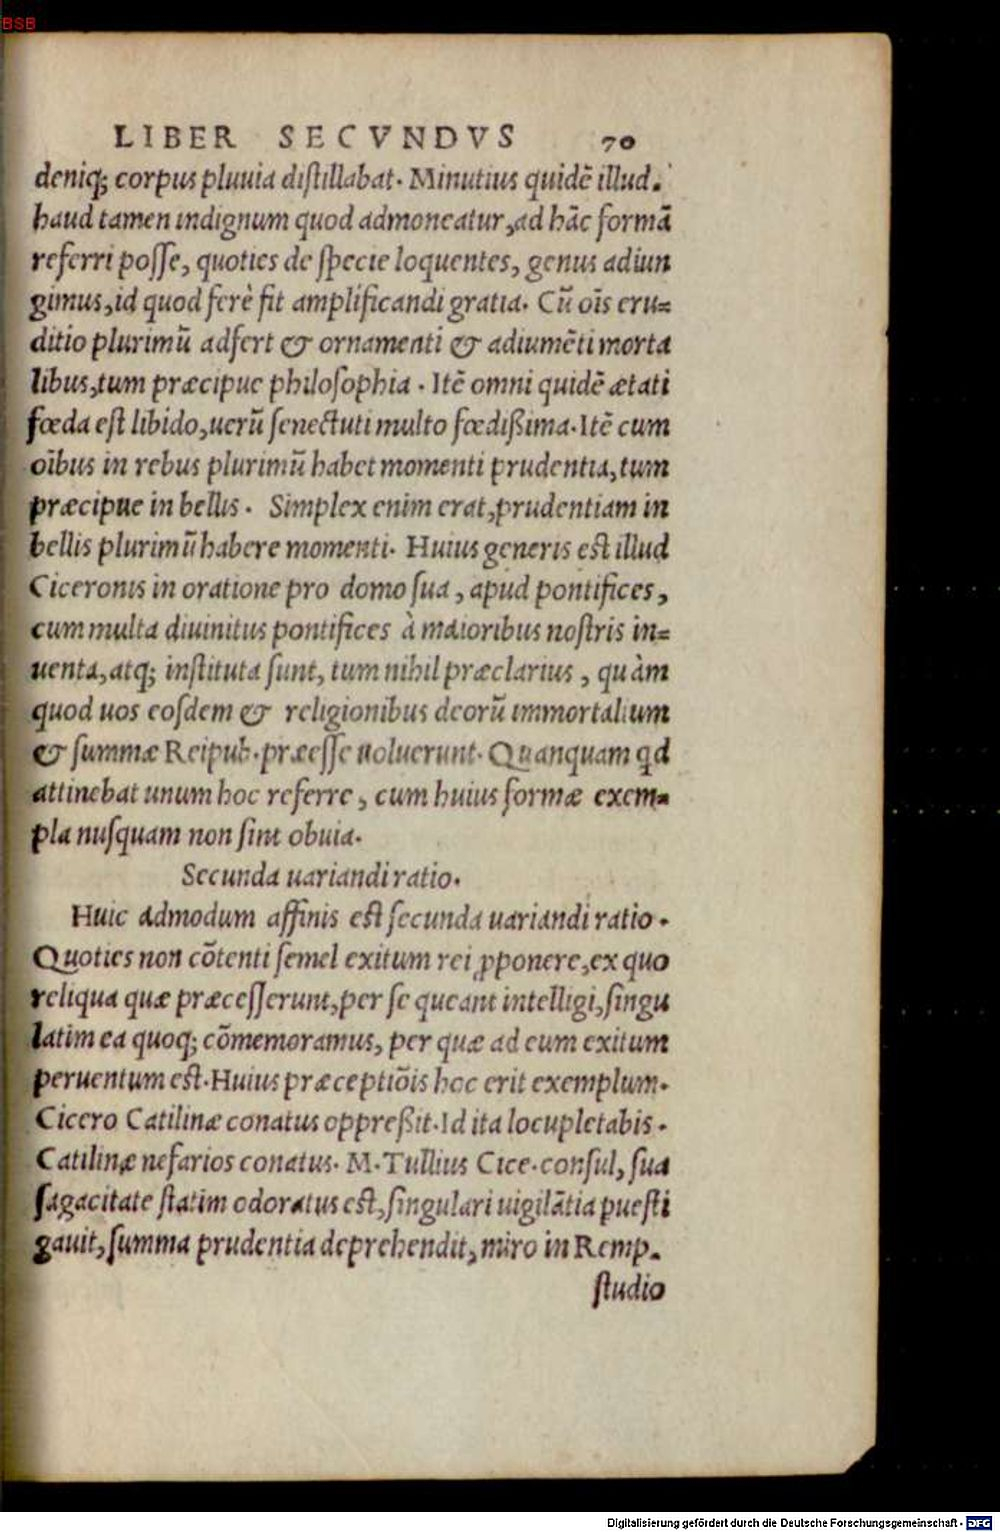 BSB
LIBER SECVNDVS 70
deniq; corpus pluuia distillabat. Minutius quidē illud.
haud tamen indignum quod admoneatur, ad hāc formā
referri posse, quoties de specie loquentes, genus adiun
gimus, id quod ferè fit amplificandi gratia. Cū oīs eru=
ditio plurimū adfert & ornamenti & adiumēti morta
libus, tum præcipue philosophia. Itē omni quidē ætati
fœda est libido, uerū senectuti multo fœdißima. Itē cum
oībus in rebus plurimū habet momenti prudentia, tum
præcipue in bellis. Simplex enim erat, prudentiam in
bellis plurimū habere momenti. Huius generis est illud
Ciceronis in oratione pro domo sua, apud pontifices,
cum multa diuinitus pontifices à maioribus nostris in=
uenta, atq; instituta sunt, tum nihil præclarius, quàm
quod uos eosdem & religionibus deorū immortalium
& summæ Reipub. præesse uoluerunt. Quanquam qd
attinebat unum hoc referre, cum huius formæ exem=
pla nusquam non sint obuia.
Secunda uariandi ratio.
Huic admodum affinis est secunda uariandi ratio.
Quoties non cōtenti semel exitum rei ꝓponere, ex quo
reliqua quæ præcesserunt, per se queant intelligi, singu
latim ea quoq; cōmemoramus, per quæ ad eum exitum
peruentum est. Huius præceptiōis hoc erit exemplum.
Cicero Catilinæ conatus oppreßit. Id ita locupletabis.
Catilinæ nefarios conatus. M. Tullius Cice. consul, sua
sagacitate statim odoratus est, singulari uigilātia puesti
gauit, summa prudentia deprehendit, miro in Remp.
studio
Digitalisierung gefördert durch die Deutsche Forschungsgemeinschaft - DFG